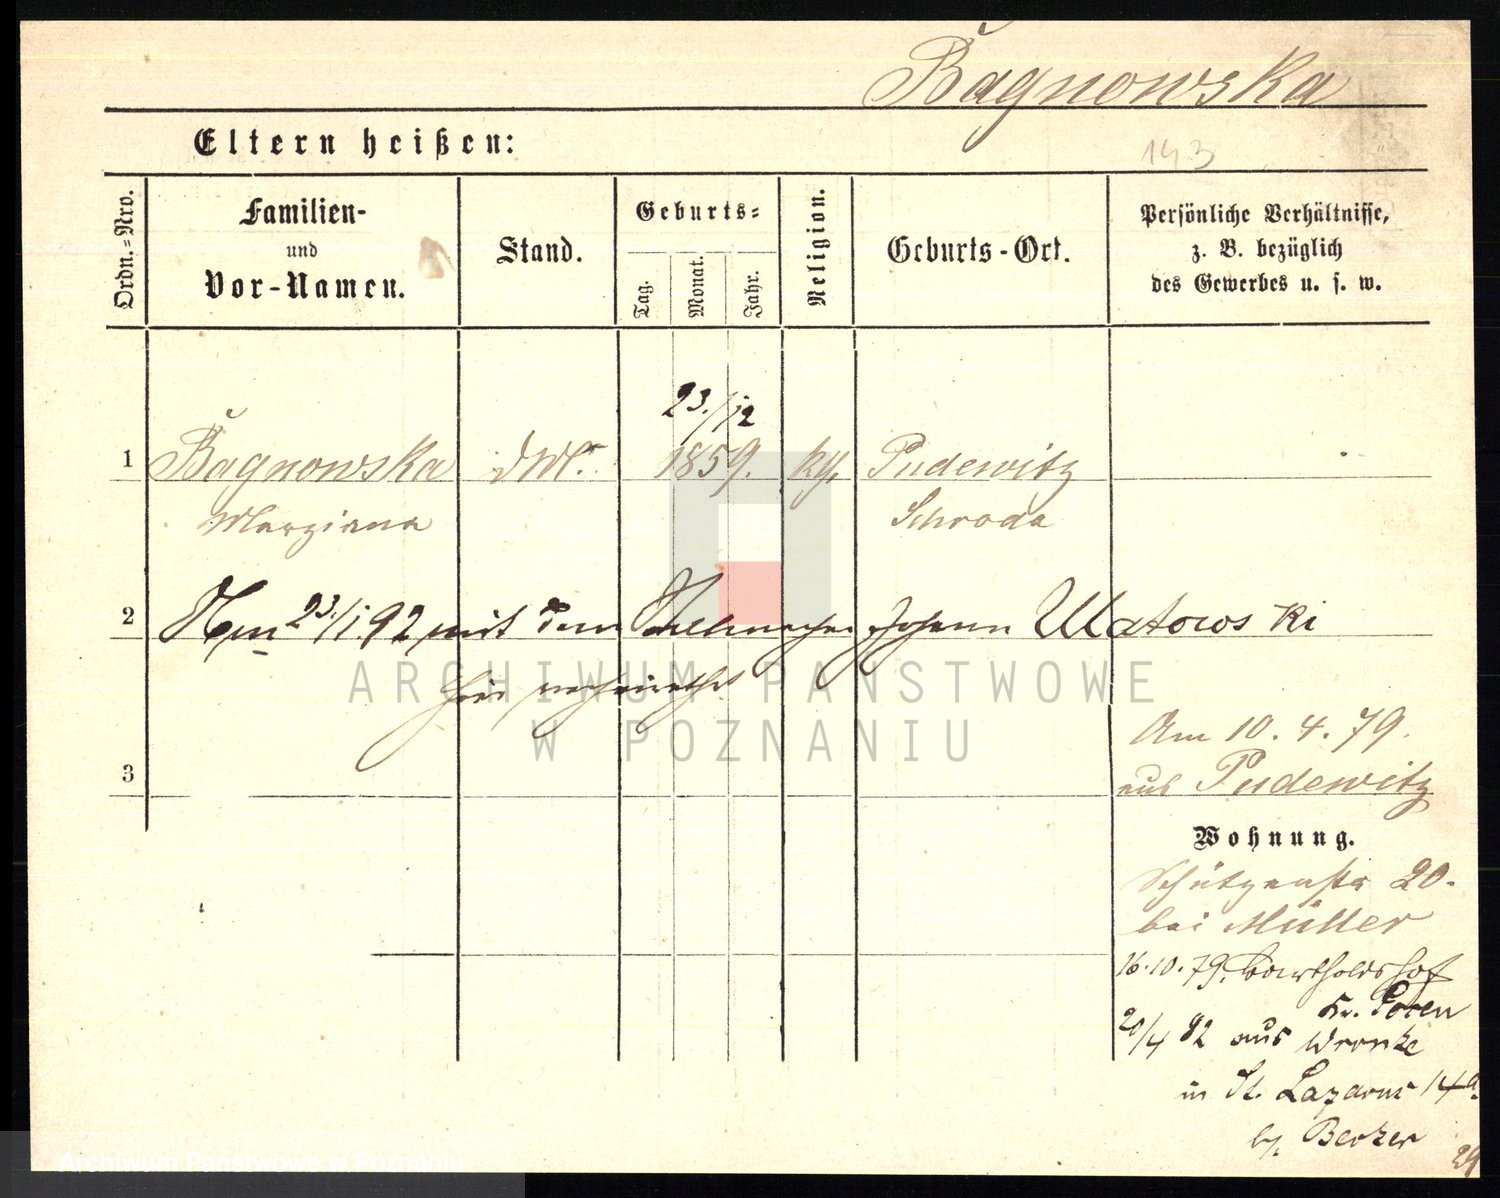 Bagnowska
Eltern heißen:
143
Ordn.=Nro.
Familien-
und
Vor-Namen.
Stand.
Geburts=
Tag.
Monat.
Jahr.
Religion.
Geburts-Ort.
Persönliche Verhältnisse,
z. B. bezüglich
des Gewerbes u. s. w.
23./12
1 Bagnowska 1859. Pudewitz
Marziana Schroda
2 23/1.92 mit dem Johann
hier verheirathet
ARCHIWUM PAŃSTWOWE
W POZNANIU
3
Am 10.4.79.
aus Pudewitz
Wohnung.
Schützenstr 20.
bei Müller
16.10.79. Bartholdshof
Kr. Posen
20/4 92 aus Wronke
in St. Lazarus 14a.
b/.
29
Archiwum Państwowe w Poznaniu